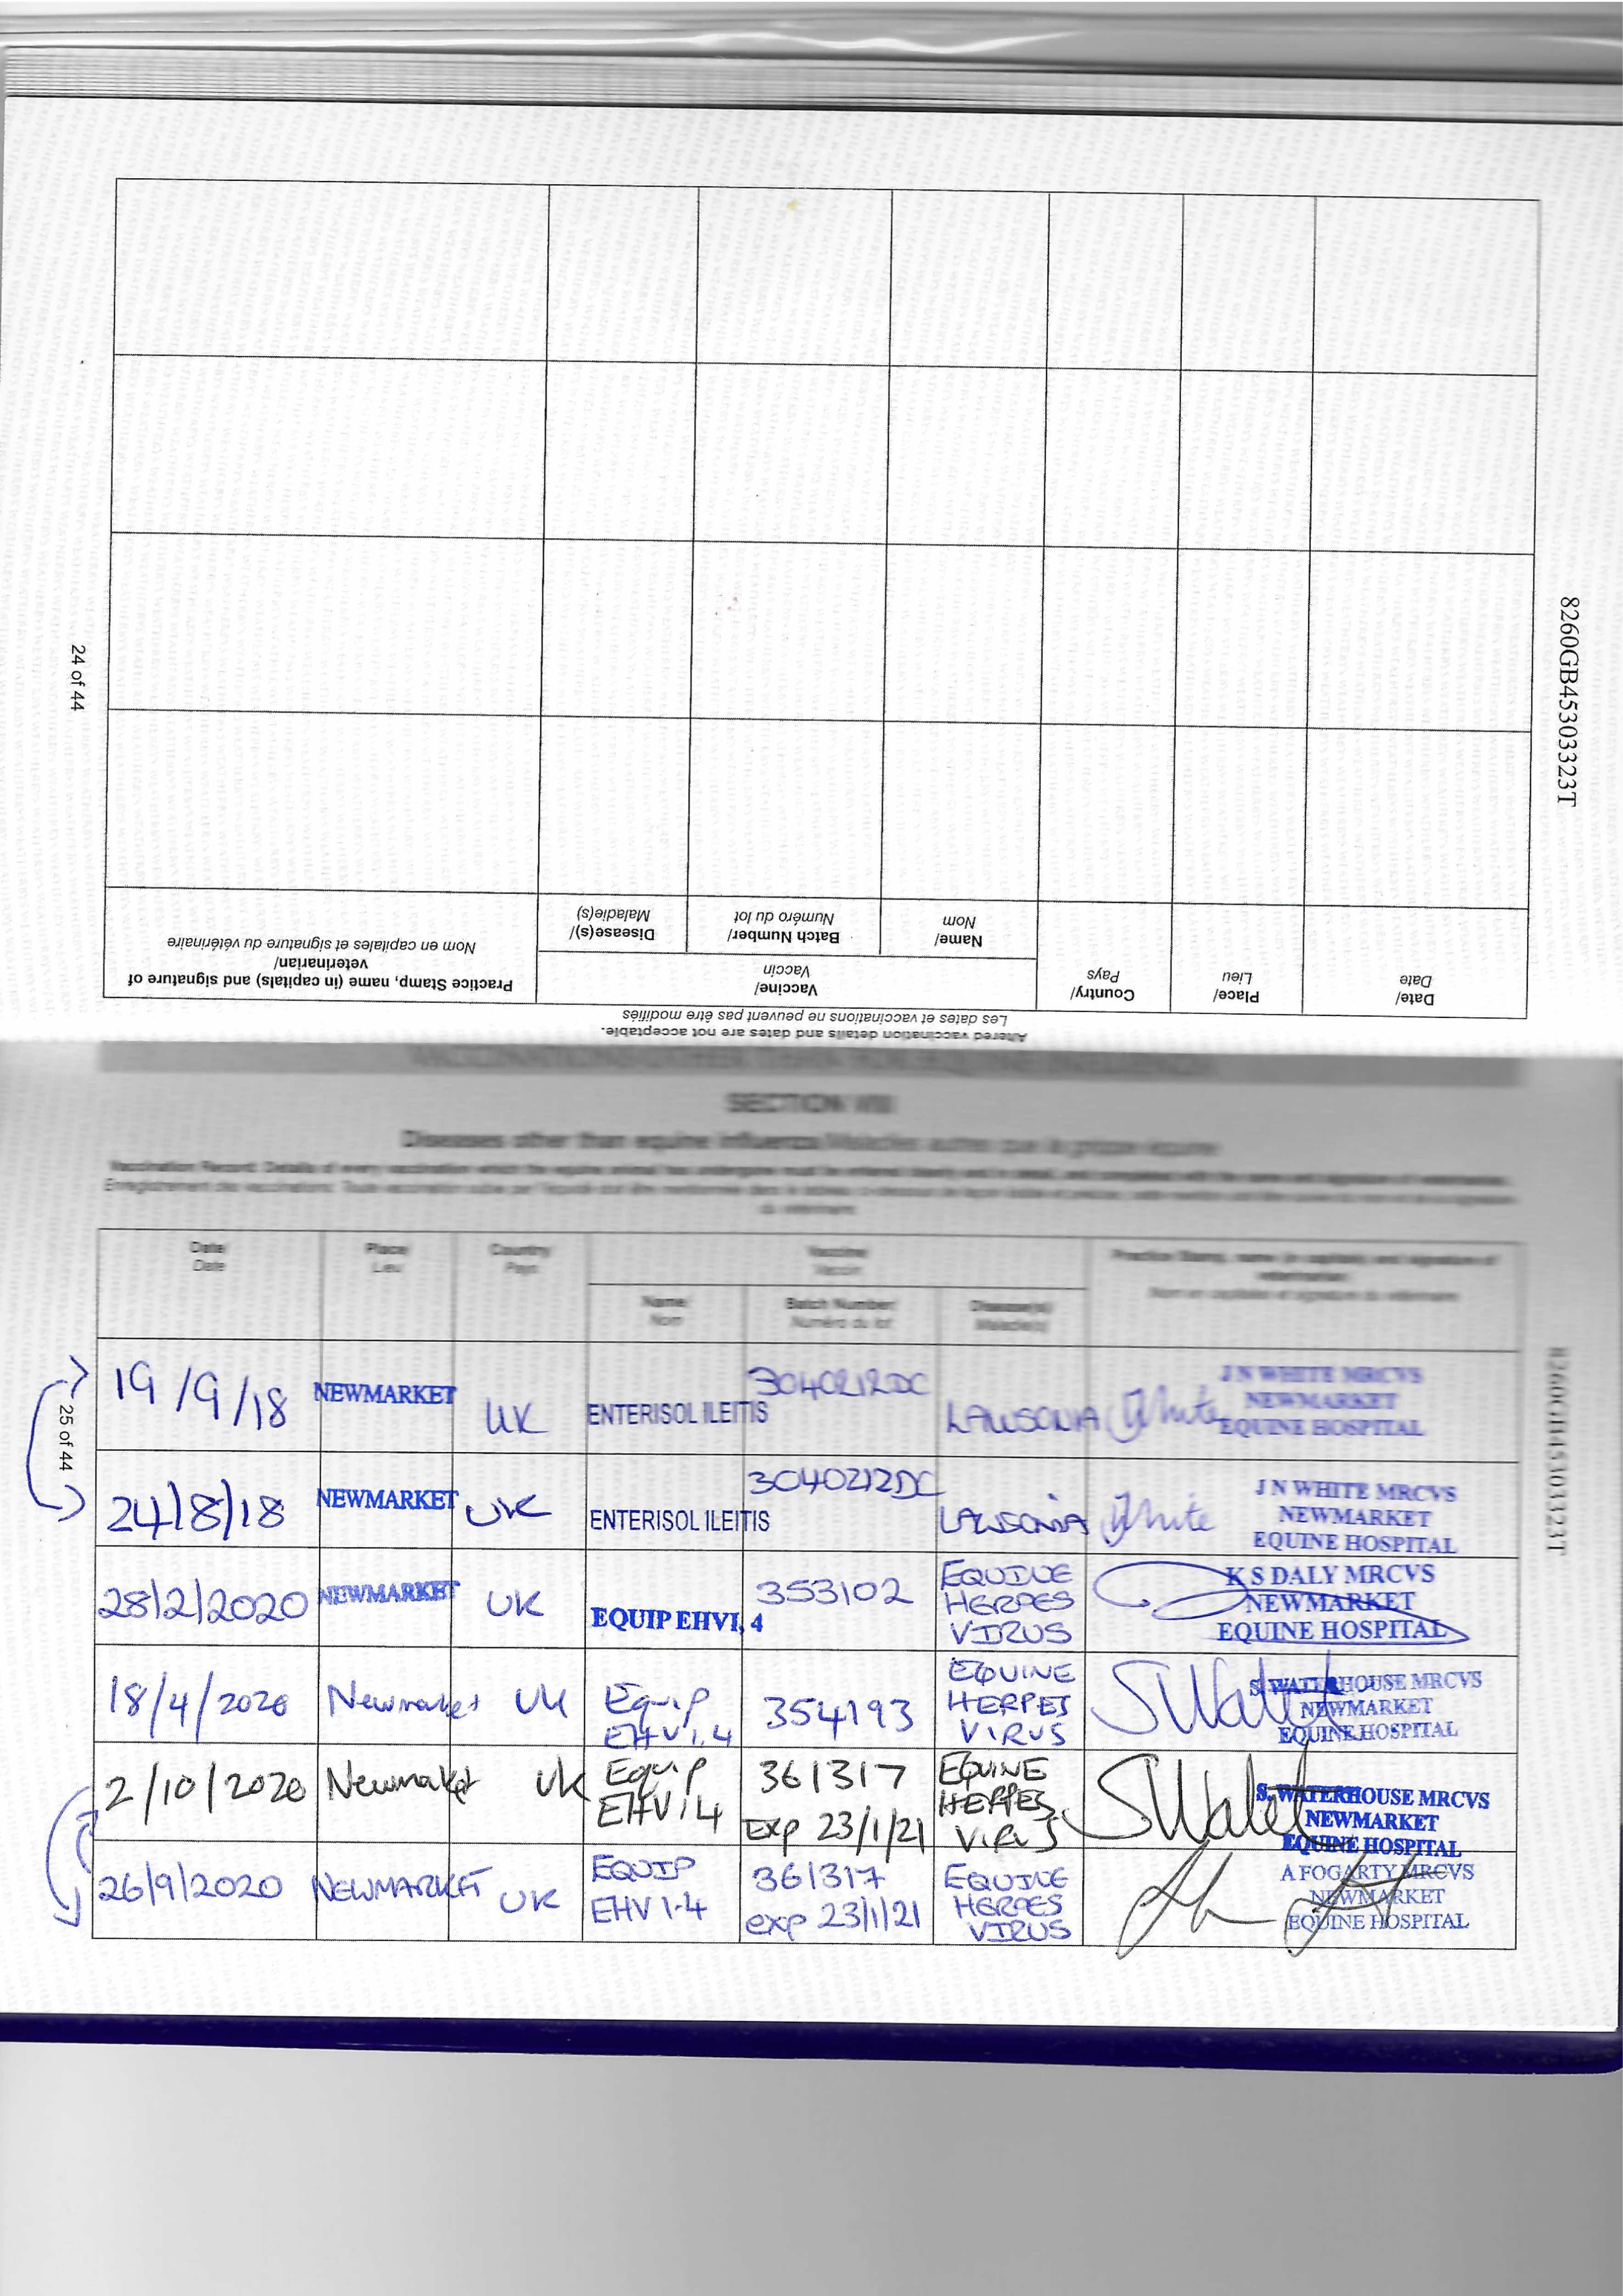 8260GB45303323T
24 of 44
Altered vaccination details and dates are not acceptable.
Les dates et vaccinations ne peuvent pas être modifiés
Date/
Date
Place/
Lieu
Country/
Pays
Vaccine/
Vaccin
Name/
Nom
Batch Number/
Numéro du lot
Disease(s)/
Maladie(s)
Practice Stamp, name (in capitals) and signature of
veterinarian/
Nom en capitales et signature du vétérinaire
SECTION VIII
Diseases other than equine influenza/Maladies autres que la grippe équine
Vaccination Record: Details of every vaccination which the equine animal has undergone must be entered clearly and in detail, and completed with the name and signature of veterinarian.
du vétérinaire
Date/
Date
Place/
Lieu
Country/
Pays
Vaccine/
Vaccin
Name/
Nom
Batch Number/
Numéro du lot
Disease(s)/
Maladie(s)
Practice Stamp, name (in capitals) and signature of
veterinarian/
Nom en capitales et signature du vétérinaire
19/9/18 NEWMARKET UK ENTERISOL ILEITIS 3040212DC LAWSONIA White
J N WHITE MRCVS
NEWMARKET
EQUINE HOSPITAL
24/8/18 NEWMARKET UK ENTERISOL ILEITIS 3040212DC LAWSONIA White
J N WHITE MRCVS
NEWMARKET
EQUINE HOSPITAL
28/2/2020 NEWMARKET UK EQUIP EHV1, 4 353102
EQUINE
HERPES
VIRUS
K S DALY MRCVS
NEWMARKET
EQUINE HOSPITAL
18/4/2020 Newmarket UK
Equip
EHV 1.4
354193
EQUINE
HERPES
VIRUS
S. WATERHOUSE MRCVS
NEWMARKET
EQUINE HOSPITAL
2/10/2020 Newmarket UK
Equip
EHV 1 4
361317
Exp 23/1/21
EQUINE
HERPES
VIRUS
S. WATERHOUSE MRCVS
NEWMARKET
EQUINE HOSPITAL
26/9/2020 NEWMARKET UK
EQUIP
EHV 1.4
361317
exp 23/1/21
EQUINE
HERPES
VIRUS
A FOGARTY MRCVS
NEWMARKET
EQUINE HOSPITAL
25 of 44
8260GB45303323T